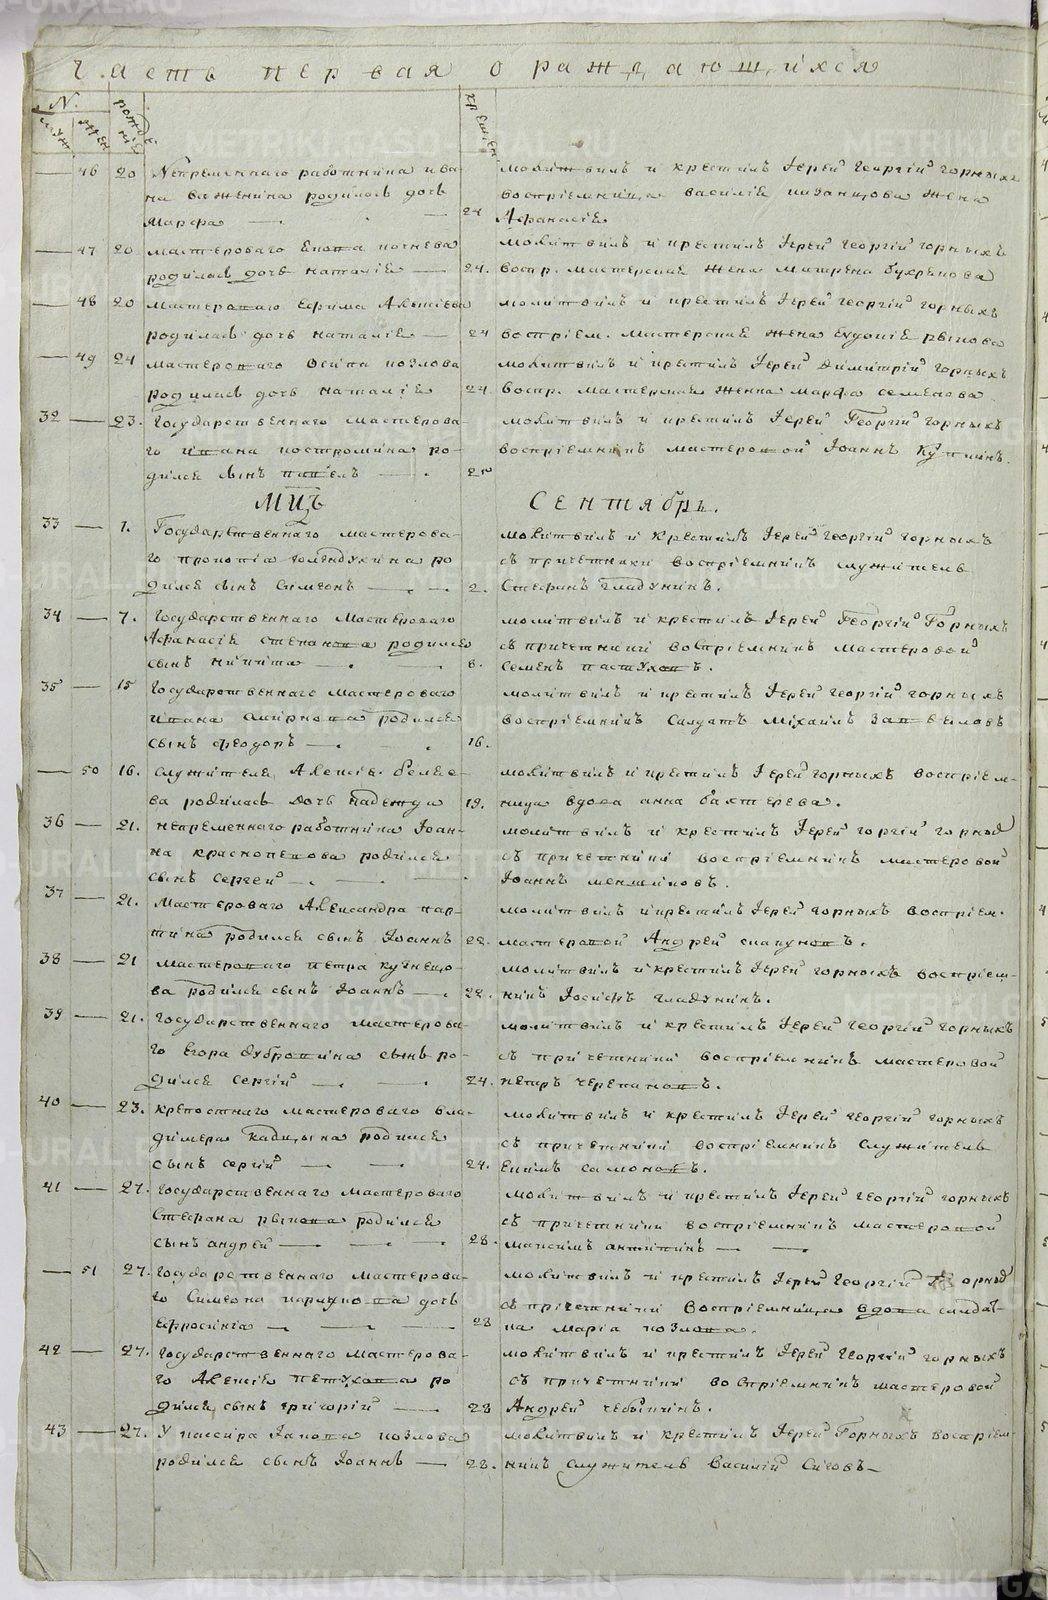 Часть первая о раждающихся
N.
муж
жен
рожде
ніе
крещен
46 20 Непременнаго работника ива
на баженина родилась дочь
марфа 24
молитвилъ и крестилъ Іерей Георгій горныхъ
воспріемница василіе жена
Афанасіе
47 20 мастероваго
родилась дочь наталіе 24.
молитвилъ и крестилъ Іерей Георгій горныхъ
воспр. мастерская жена матрена бухрекова
48 20 мастероваго Ефима Алексіева
родилась дочь наталіе 24
молитвилъ и крестилъ Іерей георгій горныхъ
воспріем. мастерская жена Еудокіе рыкова
49 24 мастероваго Осипа козлова
родилась дочь наталіе 24.
молитвилъ и крестилъ Іерей Димитрій горныхъ
воспр. мастерская женка марфа семенова
32 23. Государственнаго мастерова-
го ивана костромина ро-
дился сынъ павелъ
молитвилъ и крестилъ Іерей Георгій горныхъ
воспріемникъ мастеровой Іоаннъ Купкинъ.
Мцъ Сентябрь.
33 1. Государственнаго мастерова-
го прокопіа голендухина ро
дился сынъ Симеонъ 2.
молитвилъ и крестилъ Іерей георгій горныхъ
съ причетники воспріемникъ служитель
Стефанъ гладунинъ.
34 7. Государственнаго мастероваго
Афанасіе степанова родился
сынъ никита 8.
молитвилъ и крестилъ Іерей Георгій Горныхъ
съ причетники воспріемникъ мастеровой
семенъ пастуховъ.
35 15 Государственнаго мастероваго
ивана смирнова родился
сынъ феодоръ 16.
молитвилъ и крестилъ Іерей георгій горныхъ
воспріемникъ салдатъ михаилъ
50 16. служителя Алексіе беляе-
ва родилась дочь надежда 19.
молитвилъ и крестилъ Іерей горныхъ воспріем-
ница вдова анна бахтерева.
36 21. непременнаго работника Іоан-
на красноперова родился
сынъ сергей
молитвилъ и крестилъ Іерей горгій горных
съ причетники воспріемникъ мастеровой
Іоаннъ меншиковъ.
37 21. мастероваго Александра кар-
пина родился сынъ Іоаннъ 22.
молитвилъ и крестилъ Іерей горныхъ воспріем.
мастеровой Андрей скакуновъ.
38 21 мастероваго петра кузнецо-
ва родился сынъ Іоаннъ 22.
молитвилъ и крестилъ Іерей горныхъ воспріем-
никъ Іосифъ гладунинъ.
39 21. государственнаго мастерова-
го Егора дубровина сынъ ро-
дился сергій 24.
молитвилъ и крестилъ Іерей георгій горныхъ
съ причетники воспріемникъ мастеровой
петръ черепановъ.
40 23. крепостнаго мастероваго вла-
димера кадцына родился
сынъ сергій 24.
молитвилъ и крестилъ Іерей георгій горныхъ
съ причетники воспріемникъ служитель
Екимъ самоновъ.
41 27. государственнаго мастероваго
Стефана рыкова родился
сынъ андрей 28.
молитвилъ и крестилъ Іерей георгій горныхъ
съ причетники воспріемникъ мастеровой
максимъ антипинъ
51 27. государственнаго мастерова-
го Симеона дочь
ефросиніа 28
молитвилъ и крестилъ Іерей Георгій
съ причетники воспріемница вдова салдат-
ка маріа козлова.
42 27. государственнаго мастерова-
го Алексіе петухова ро
дился сынъ григорій 28
молитвилъ и крестилъ Іерей георгій горныхъ
съ причетники воспріемникъ мастеровой
Андрей чебыкинъ.
43 27. У кассира Іакова козлова
родился сынъ Іоаннъ 28.
молитвилъ и крестилъ Іерей Горныхъ воспріем-
никъ служитель василій Сиговъ